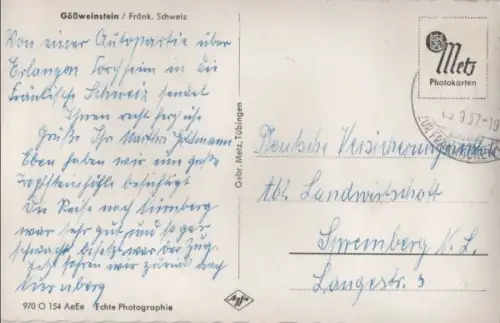 Gößweinstein / Fränk. Schweiz
Von einer Autopartie über
Erlangen Forchheim in die
Fränkische Schweiz sendet
Ihnen recht herzliche
Grüße Ihr Martin
Eben haben wir eine große
Tropfsteinhöhle besichtigt
Die Reise nach Nürnberg
war sehr gut und sogar
schwach besetzt war der Zug.
Jetzt fahren wir zurück nach
Nürnberg
970 O 154 AeEe Echte Photographie
Agfa
Gebr. Metz, Tübingen
Metz
Photokarten
9.57-19
Deutsche Versicherungsanstalt
Abt. Landwirtschaft
Spremberg N. L.
Langestr. 3